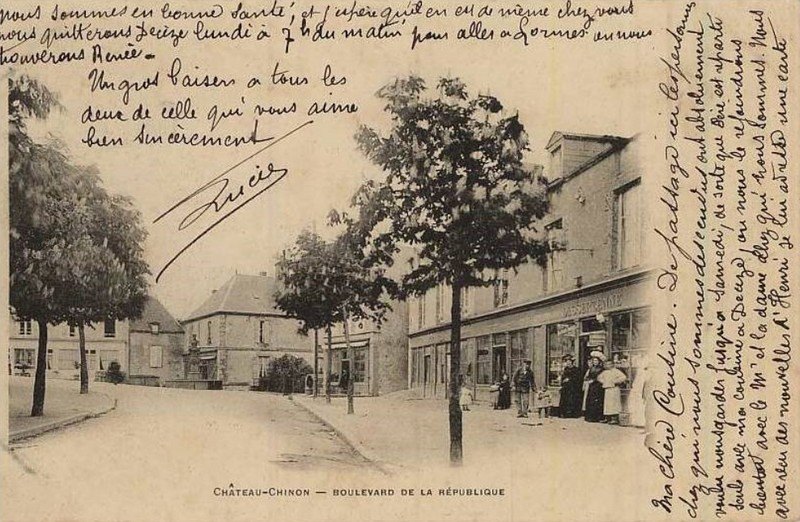 Ma chère Cousine. De passage ici les personnes
chez qui nous sommes descendus ont absolument
voulu nous garder jusqu'à Samedi, de sorte que est reparti
seule avec ma cousine à Decize, où nous le rejoindrons
bientôt avec le Mr et la dame chez qui nous sommes. Nous
avons reçu des nouvelles d'Henri je lui adresse une carte
nous sommes en bonne santé, et j'espère qu'il en est de même chez vous
nous quitterons Decize lundi à 7h du matin, pour aller à où nous
trouverons Renée -
Un gros baisers a tous les
deux de celle qui vous aime
bien sincerement
Lucie
CHÂTEAU-CHINON — BOULEVARD DE LA RÉPUBLIQUE